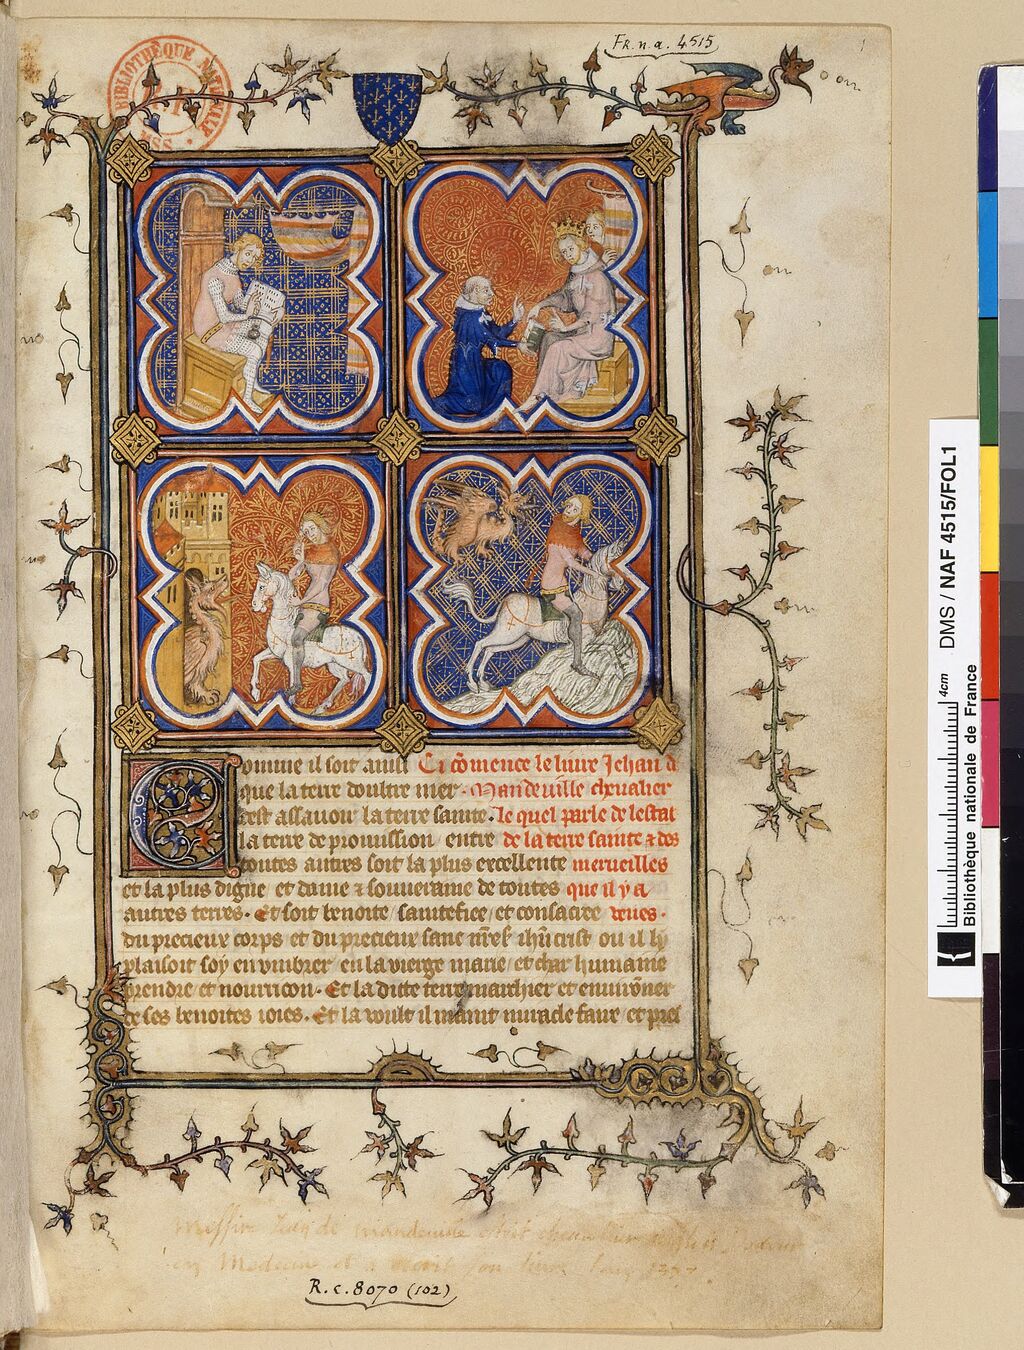 Fr. n. a. 4515
1
BIBLIOTHÈQUE NATIONALE
R.F.
MSS
omme il soit ainsi Ci cōmence le liure Jehan d
que la terre doultre mer · Mandeuille cheualier
cest assauoir la terre sainte · le quel parle de lestat
la terre de promission entre de la terre sainte ⁊ des
toutes autres soit la plus excellente merueilles
et la plus digne et dame ⁊ souueraine de toutes que il y a
autres terres · Et soit benoite / saintefiee / et consacree veues ·
du precieux corps et du precieux sanc nr̄e s̄ ih̄u crist ou il ly
plaisoit soy en vmbrer en la vierge marie / et char humaine
prendre et nourricon · Et la dicte terre marchier et enuirōner
de ses benoites ioies · Et la voult il maint miracle faire et prees
Messire Jean de mandeuille
en Medecine et a escrit son liure lan
R. c. 8070 (102)
DMS / NAF 4515/FOL1
4cm
Bibliothèque nationale de France